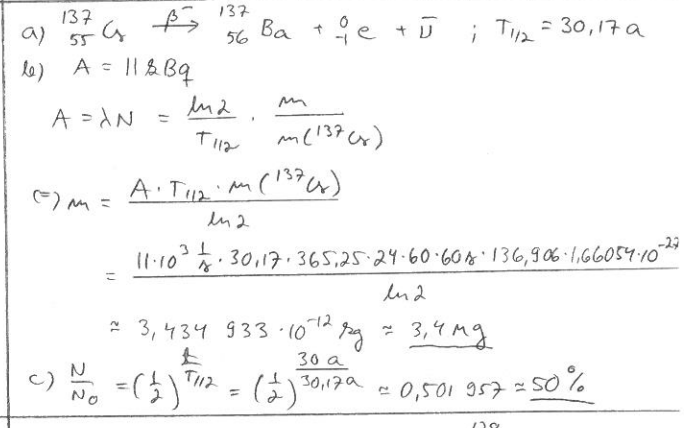 a) ¹³⁷₅₅Cs β⁻→ ¹³⁷₅₆Ba + ⁰₋₁e + ν̄ ; T₁/₂ = 30,17 a
b) A = 11 kBq
A = λN = ln2/T₁/₂ · m/m(¹³⁷Cs)
(=) m = A · T₁/₂ · m(¹³⁷Cs)/ln2
= 11·10³ 1/s · 30,17 · 365,25 · 24 · 60 · 60s · 136,906 · 1,66054 · 10⁻²⁷/ln2
≈ 3,434 933 · 10⁻¹² kg ≈ 3,4 ng
c) N/N₀ = (1/2)^(t/T₁/₂) = (1/2)^(30 a/30,17a) ≈ 0,501 957 ≈ 50 %